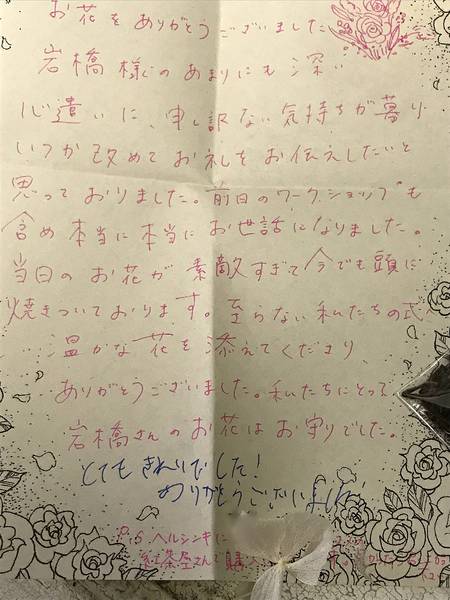 お花をありがとうございました
岩橋様のあまりにも深い
心遣いに、申し訳ない気持ちが募り
いつか改めてお礼をお伝えしたいと
思っておりました。前日のワークショップも
含め本当に本当にお世話になりました。
当日のお花が素敵すぎて今でも頭に
焼きついております。至らない私たちの式へ
温かな花を添えてくださり
ありがとうございました。私たちにとって
岩橋さんのお花はお守りでした。
とてもきれいでした!
ありがとうございました
P.S. ヘルシンキに
紅茶屋さんで購入